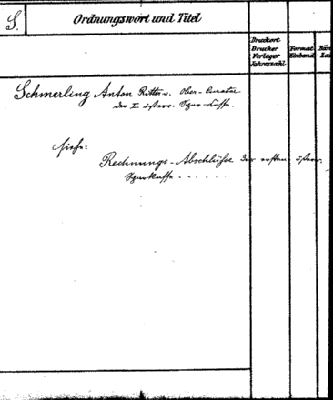 S.
Ordnungswort und Titel
Druckort
Drucker
Verleger
Jahreszahl
Format
Einband
Schmerling Anton Ritter v. Ober-Curator
der I. österr. Spar-Casse.
siehe:
Rechnungs-Abschlüsse der ersten österr.
Sparkasse - - - - -